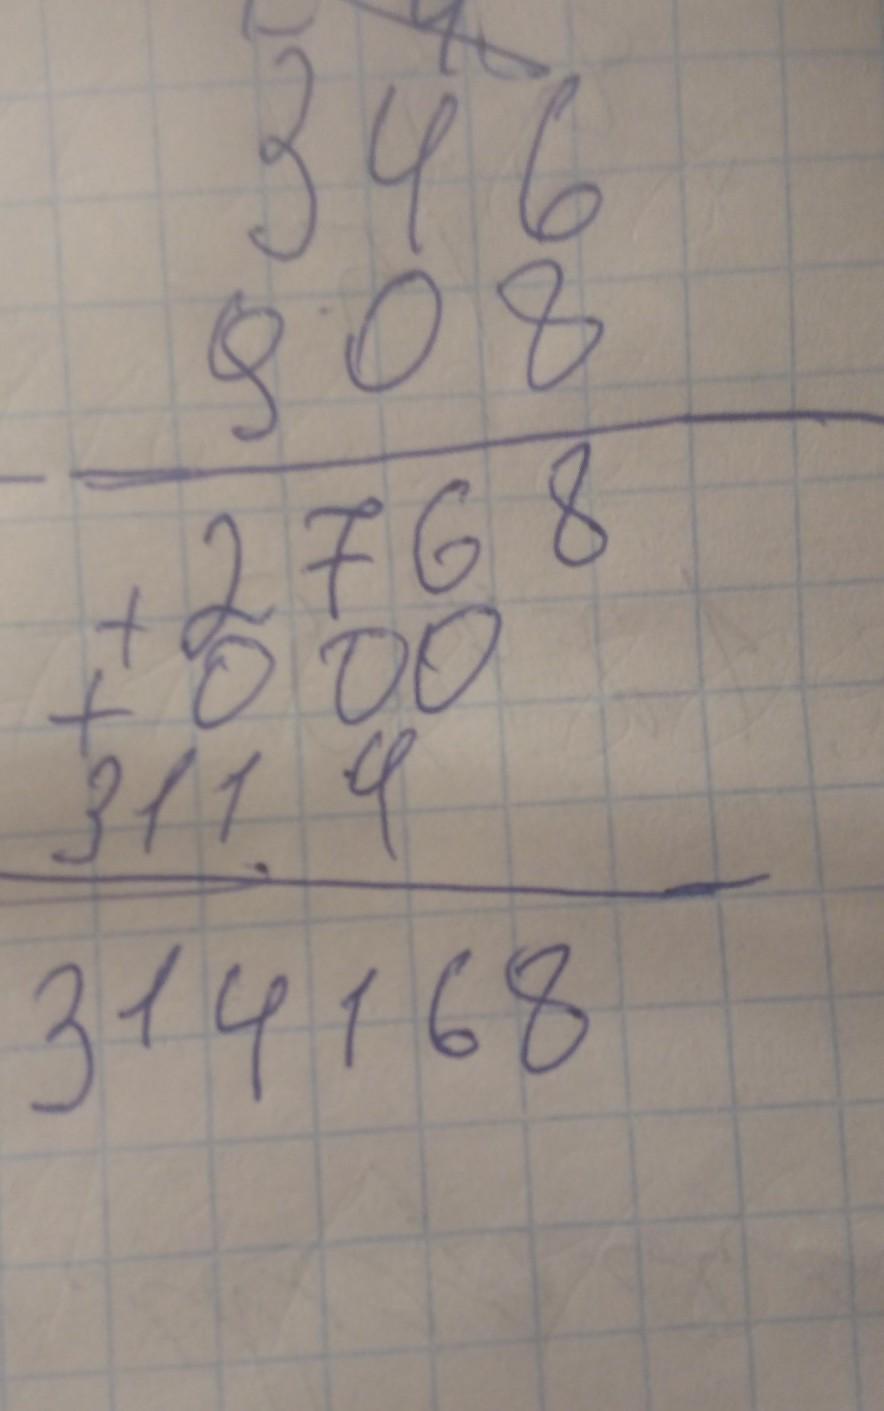 346
908
2768
+
000
+
3114
314168